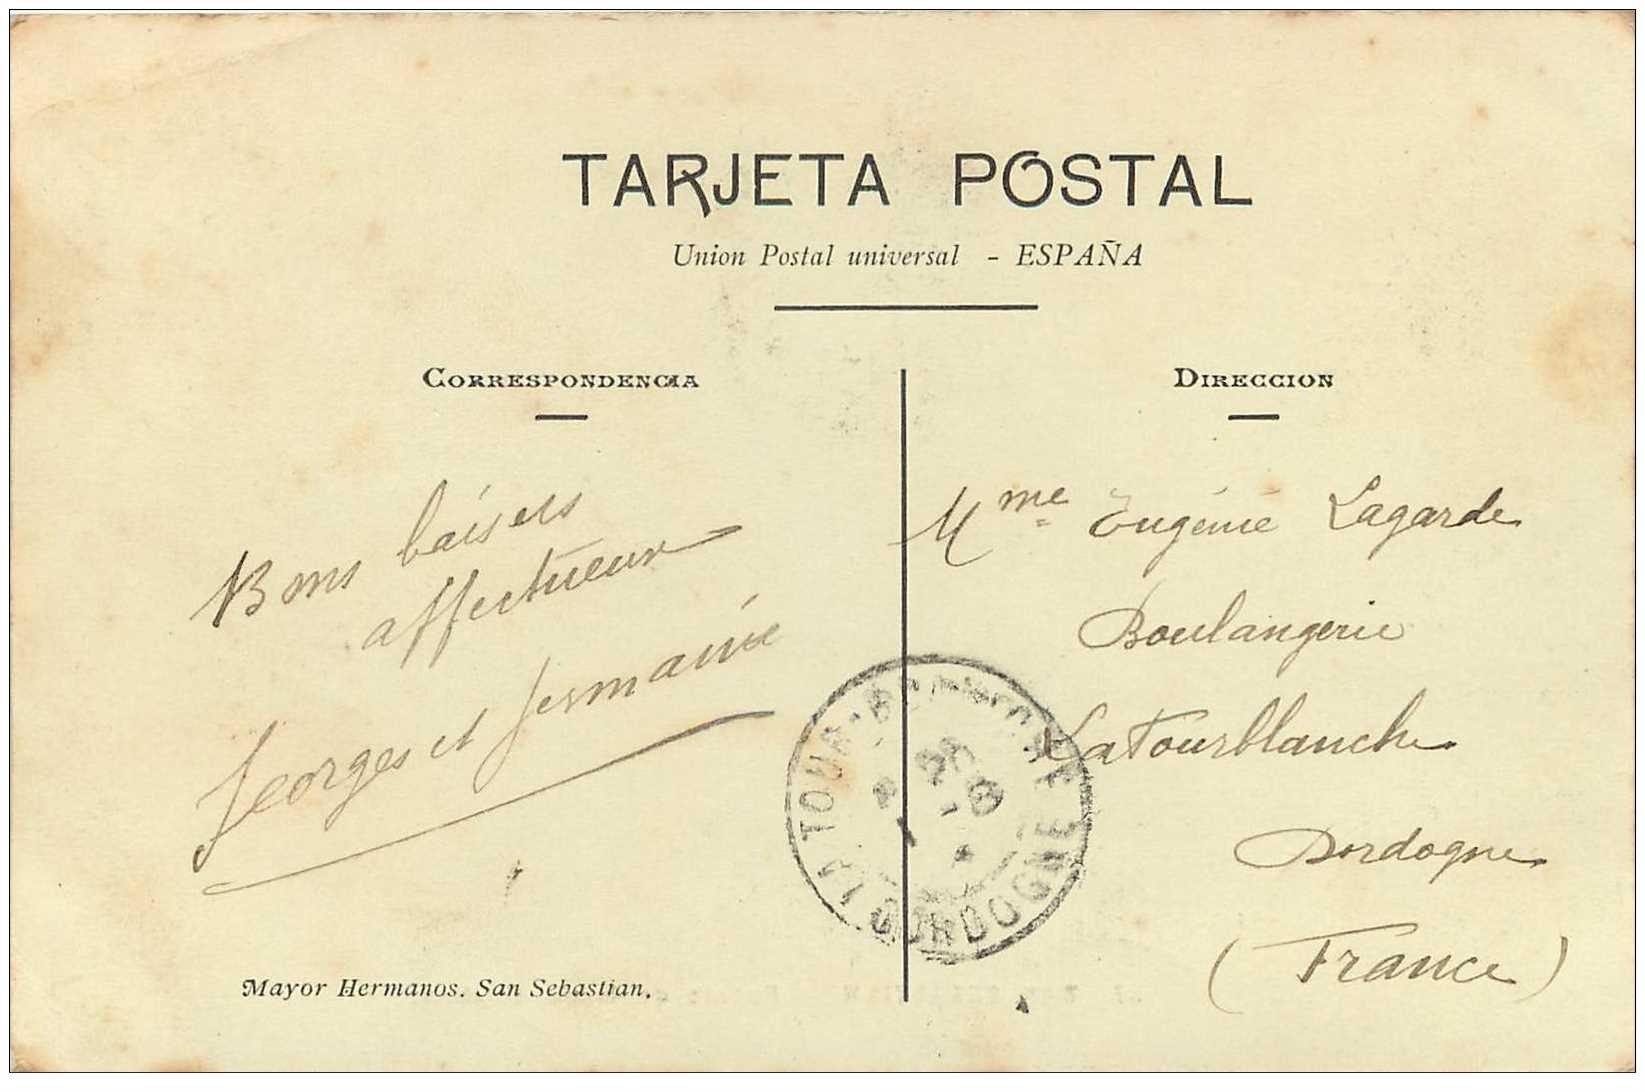 TARJETA POSTAL
Union Postal universal - ESPAÑA
CORRESPONDENCIA
DIRECCION
Bons baisers
affectueux
Georges et Germaine
Mme Eugénie Lagarde
Boulangerie
La Tourblanche
Dordogne
(France)
LA TOUR-BLANCHE
DORDOGNE
Mayor Hermanos. San Sebastian.